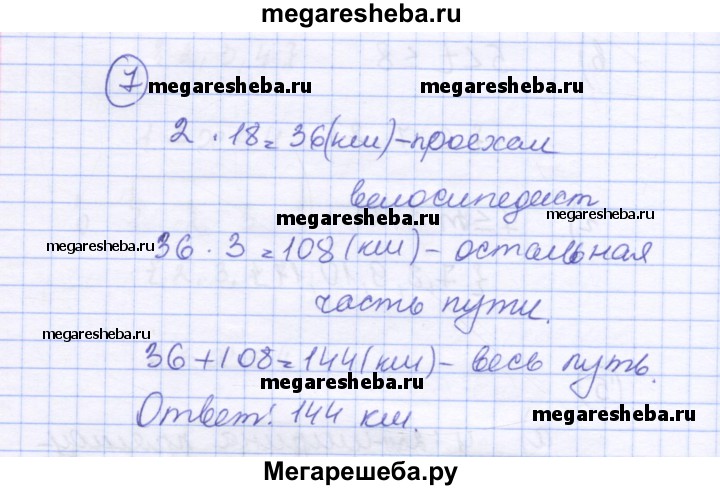 megaresheba.ru
7
megaresheba.ru
megaresheba.ru
2 · 18 = 36(км) – проехал
велосипедист
megaresheba.ru
megaresheba.ru
36 · 3 = 108 (км) – остальная
часть пути.
megaresheba.ru
36 + 108 = 144(км) – весь путь.
megaresheba.ru
megaresheba.ru
Ответ: 144 км.
Мегарешеба.ру